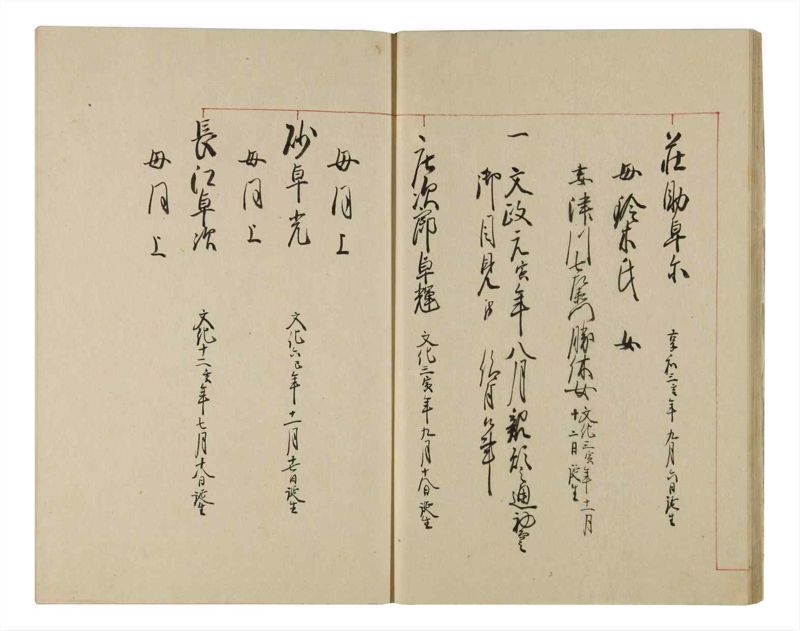 荘助卓尓 享和三亥年九月六日誕生
母鈴木氏女
妻津川七左衛門勝休女 文化三寅年十一月
十二日誕生
一文政元寅年八月親願之通初而
御目見
庄次郎卓輝 文化三寅年九月十八日誕生
母同上
砂卓光 文化六巳年十一月廿日誕生
母同上
長江卓次 文化十二亥年七月十八日誕生
母同上